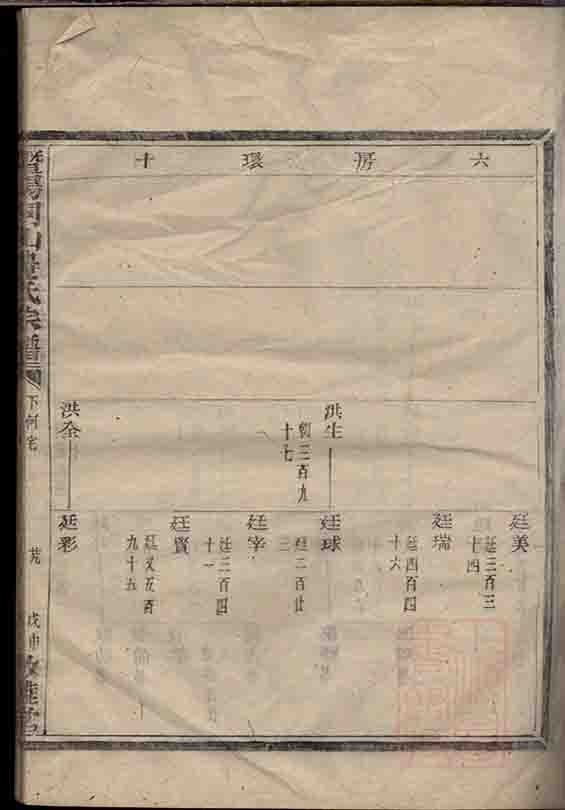 六房環十
洪生
朝三百九
十七
洪全
廷美
廷三百三
十四
廷瑞
廷四百四
十六
廷球
廷二百廿
三
廷宰
廷三百四
十一
廷賢
廷又五百
九十五
廷彩
氏宗譜
下何宅
戊申